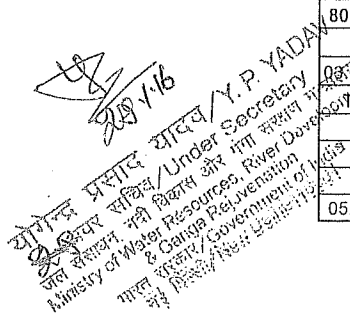 29/1/16
योगेन्द्र प्रसाद यादव/Y. P. YADAV
अवर सचिव/Under Secretary
जल संसाधन, नदी विकास और गंगा संरक्षण
Ministry of Water Resources, River Development
& Ganga Rejuvenation
भारत सरकार/Government of India
नई दिल्ली/New Delhi
80
05